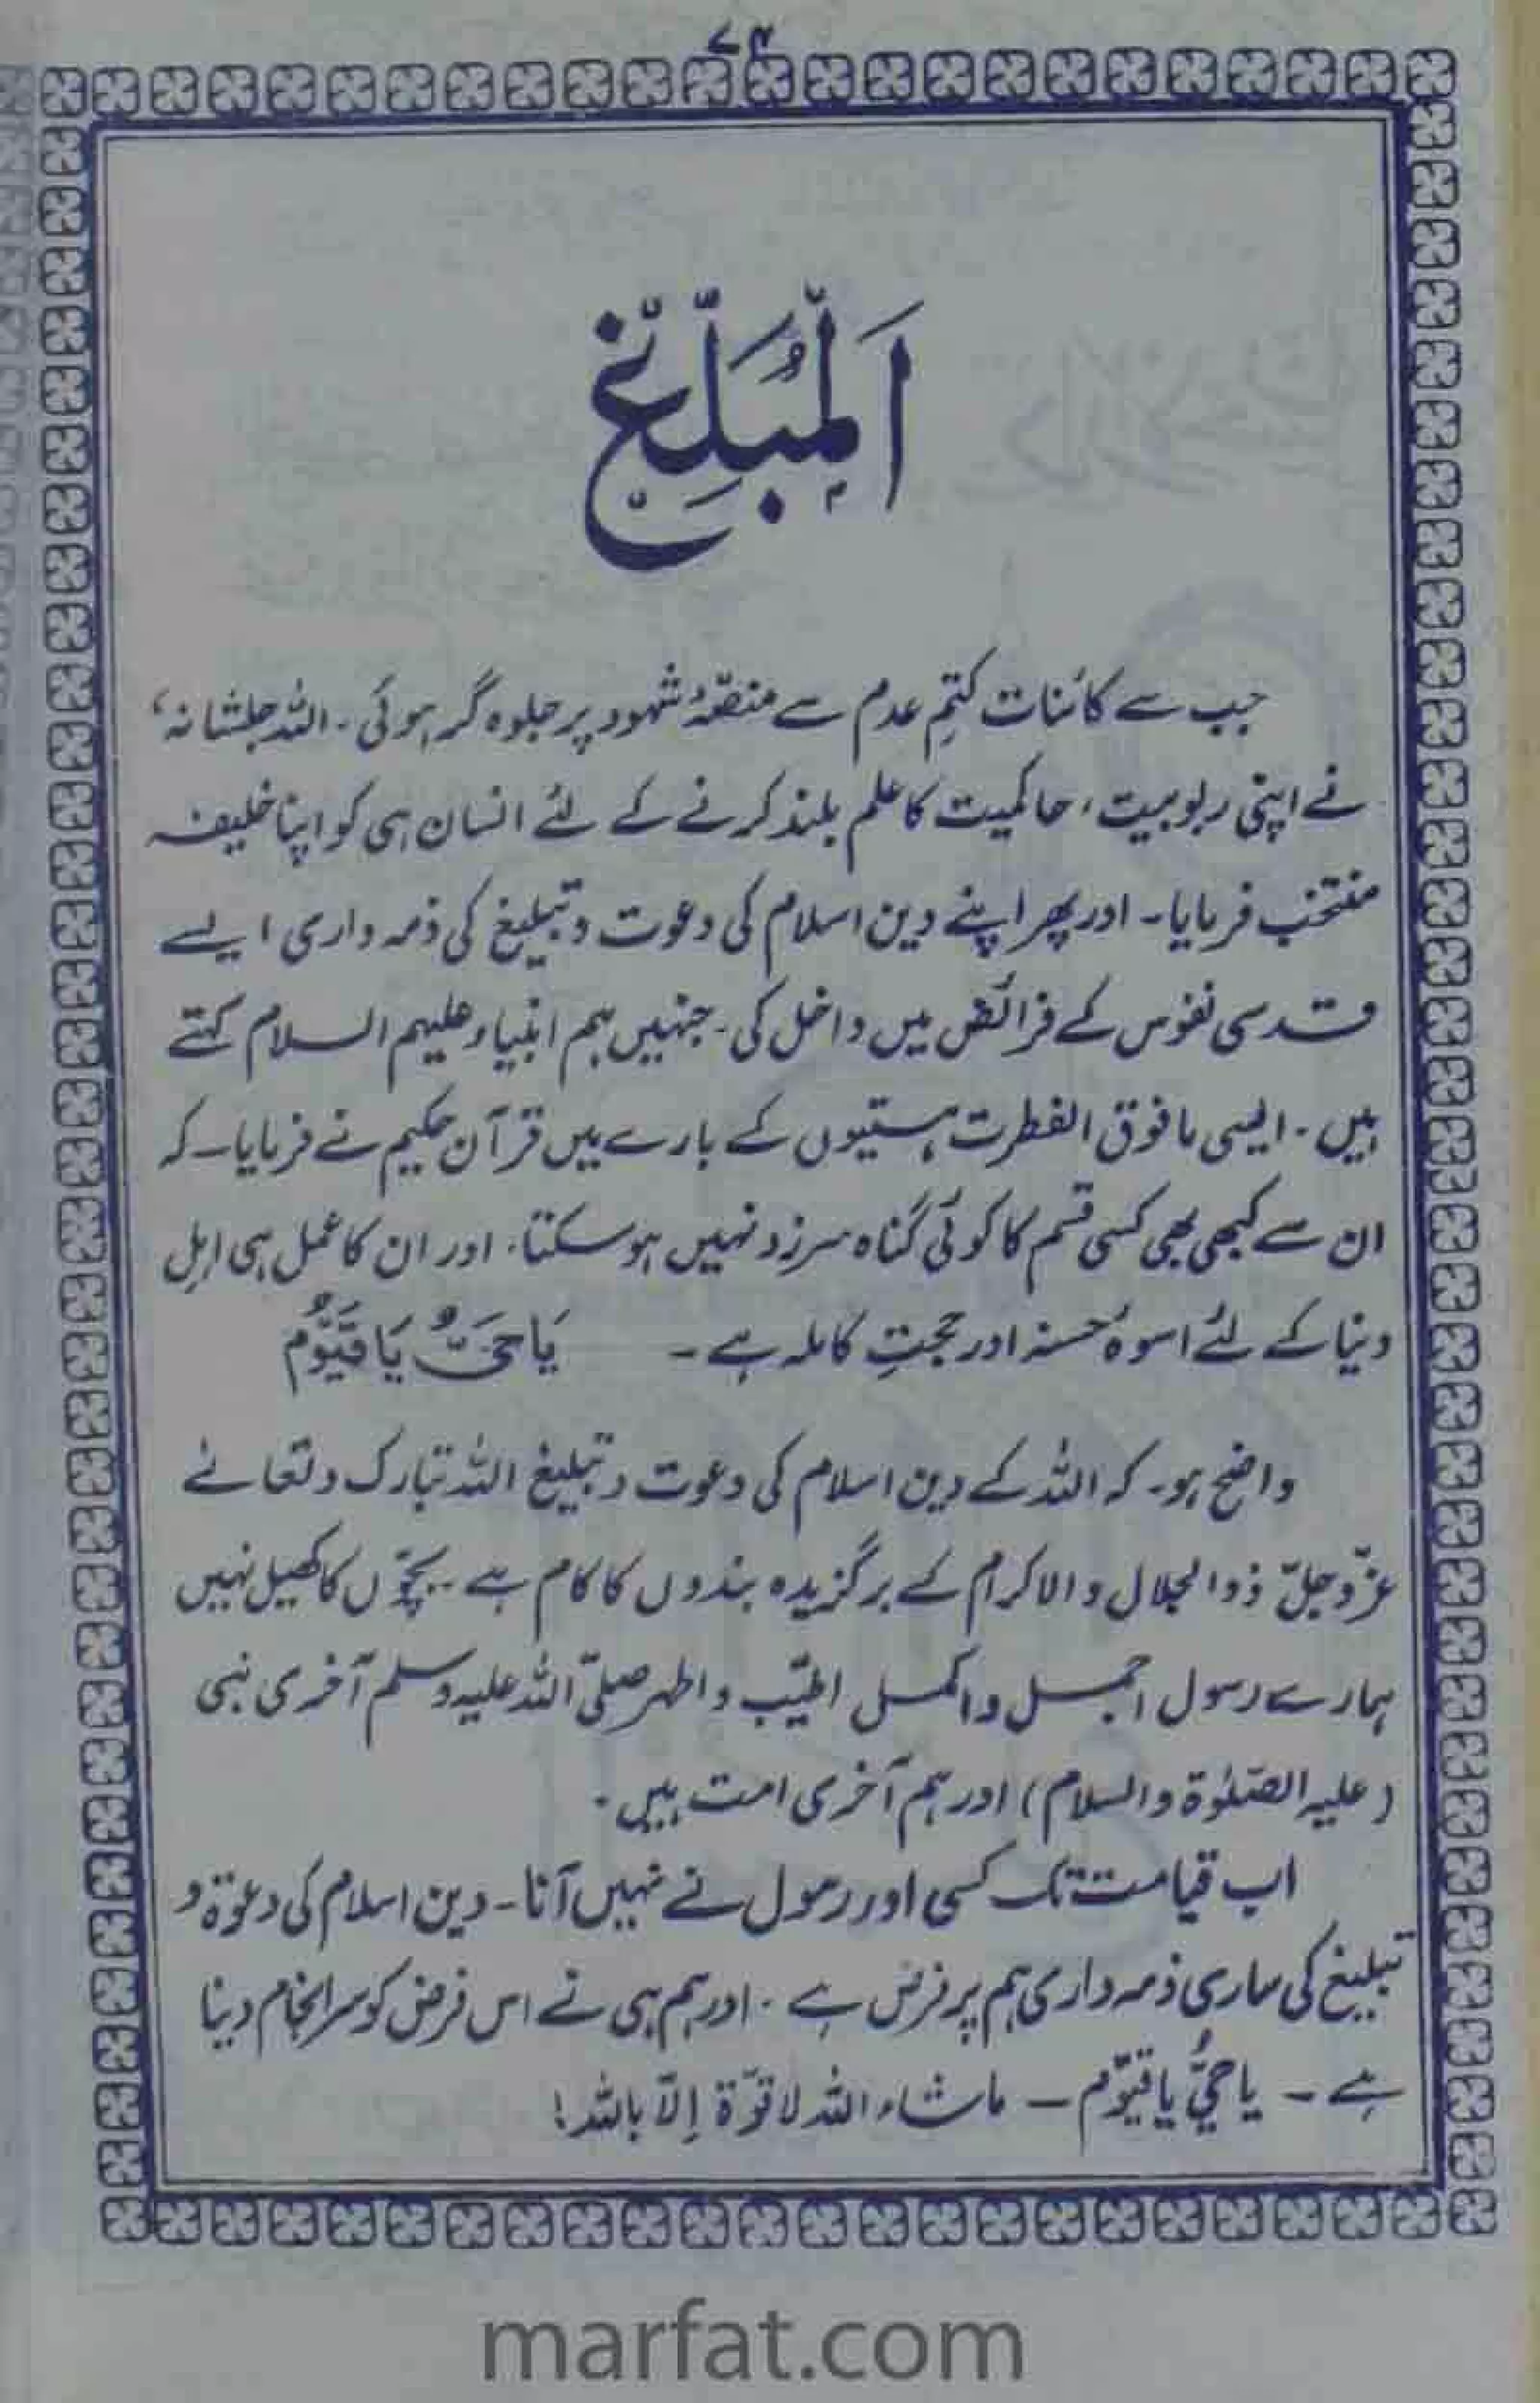 اَلْمُبَلِّغ
جب سے کائنات کتمِ عدم سے منصّۂ شہود پر جلوہ گر ہوئی ۔ اللہ جلشانہ،
نے اپنی ربوبیت ، حاکمیت کا علم بلند کرنے کے لئے انسان ہی کو اپنا خلیفہ
منتخب فرمایا ۔ اور پھر اپنے دین اسلام کی دعوت و تبلیغ کی ذمہ داری ایسے
قدسی نفوس کے فرائض میں داخل کی ۔ جنہیں ہم انبیاء علیہم السلام کہتے
ہیں ۔ ایسی مافوق الفطرت ہستیوں کے بارے میں قرآن حکیم نے فرمایا ۔ کہ
ان سے کبھی بھی کسی قسم کا کوئی گناہ سرزد نہیں ہو سکتا ۔ اور ان کا عمل ہی اہلِ
دنیا کے لئے اسوۂ حسنہ اور حجتِ کاملہ ہے ۔ یَا حَیُّ یَا قَیُّوْمُ
واضح ہو ۔ کہ اللہ کے دین اسلام کی دعوت و تبلیغ اللہ تبارک و تعالےٰ
عزّ و جلّ ذوالجلال والاکرام کے برگزیدہ بندوں کا کام ہے ۔ بچّوں کا کھیل نہیں
ہمارے رسول اجمل و اکمل اطیّب و اطہر صلّی اللہ علیہ وسلم آخری نبی
(علیہ الصّلوٰۃ والسلام) اور ہم آخری امت ہیں ۔
اب قیامت تک کسی اور رسول نے نہیں آنا ۔ دین اسلام کی دعوۃ و
تبلیغ کی ساری ذمہ داری ہم پر فرض ہے ۔ اور ہم ہی نے اس فرض کو سرانجام دینا
ہے ۔ یا حیُّ یا قیّوم ۔ ماشاء اللہ لا قوّۃ اِلّا باللہ !
marfat.com